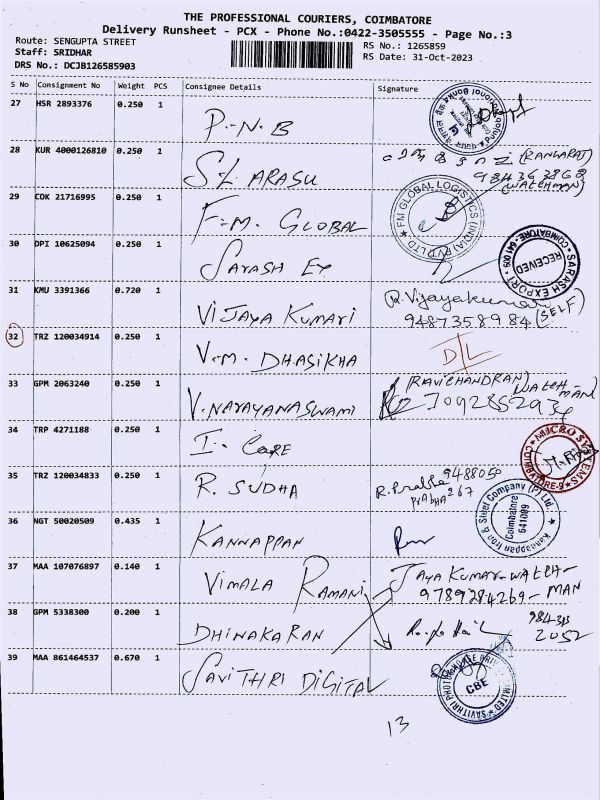 THE PROFESSIONAL COURIERS, COIMBATORE
Delivery Runsheet - PCX - Phone No.:0422-3505555 - Page No.:3
Route: SENGUPTA STREET
RS No.: 1265859
Staff: SRIDHAR
RS Date: 31-Oct-2023
DRS No.: DCJB126585903
S No Consignment No Weight PCS Consignee Details Signature
27 HSR 2893376 0.250 1 P.N.B
28 KUR 4000126810 0.250 1 S.L ARASU (RANGARAJ)
(WATCHMAN)
29 COK 21716995 0.250 1 F.M. GLOBAL FM GLOBAL LOGISTICS (INDIA) PVT LTD
30 DPI 10625094 0.250 1 SARASH EX SARASH EXPORT COIMBATORE - 641 009 RECEIVED
31 KMU 3391366 0.720 1 VIJAYA KUMARI R. Vijayakumari (SELF)
9487358984
32 TRZ 120034914 0.250 1 V.M. DHASIKHA D/L
33 GPM 2063240 0.250 1 V.NARAYANASWAMI (RAVICHANDRAN) WATCH-MAN
34 TRP 4271188 0.250 1 I. CARE MICRO SYSTEMS COIMBATORE-9
35 TRZ 120034833 0.250 1 R. SUDHA R. Prabha 9488050
PrAbHA 267
36 NGT 50020509 0.435 1 KANNAPPAN Kannappan Iron & Steel Company (P) Ltd. Coimbatore 641009
37 MAA 107076897 0.140 1 VIMALA RAMANI JAYA KUMAR-WATCH-
9789284269-MAN
38 GPM 5338300 0.200 1 DHINAKARAN
2052
39 MAA 861464537 0.670 1 SAVITHRI DIGITAL CBE
13